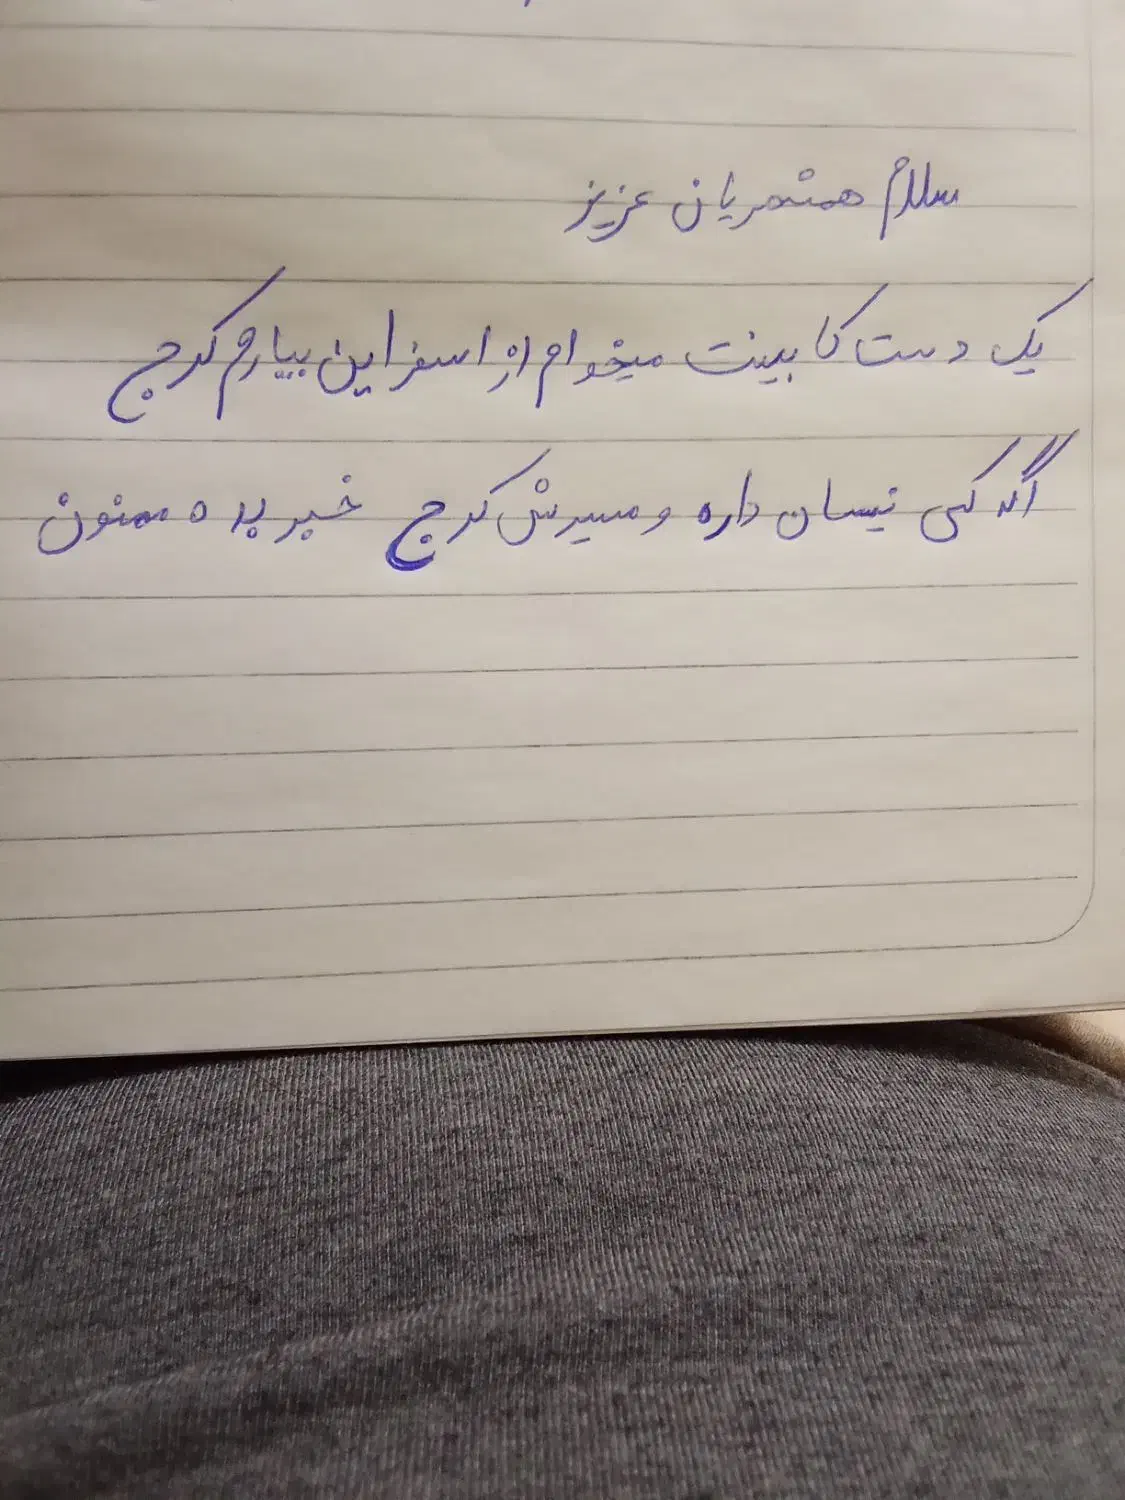 سلام همشهریان عزیز
یک دست کابینت میخوام از اسفراین بیارم کرج
اگه کسی نیسان داره و مسیرش کرج خبر بده ممنون